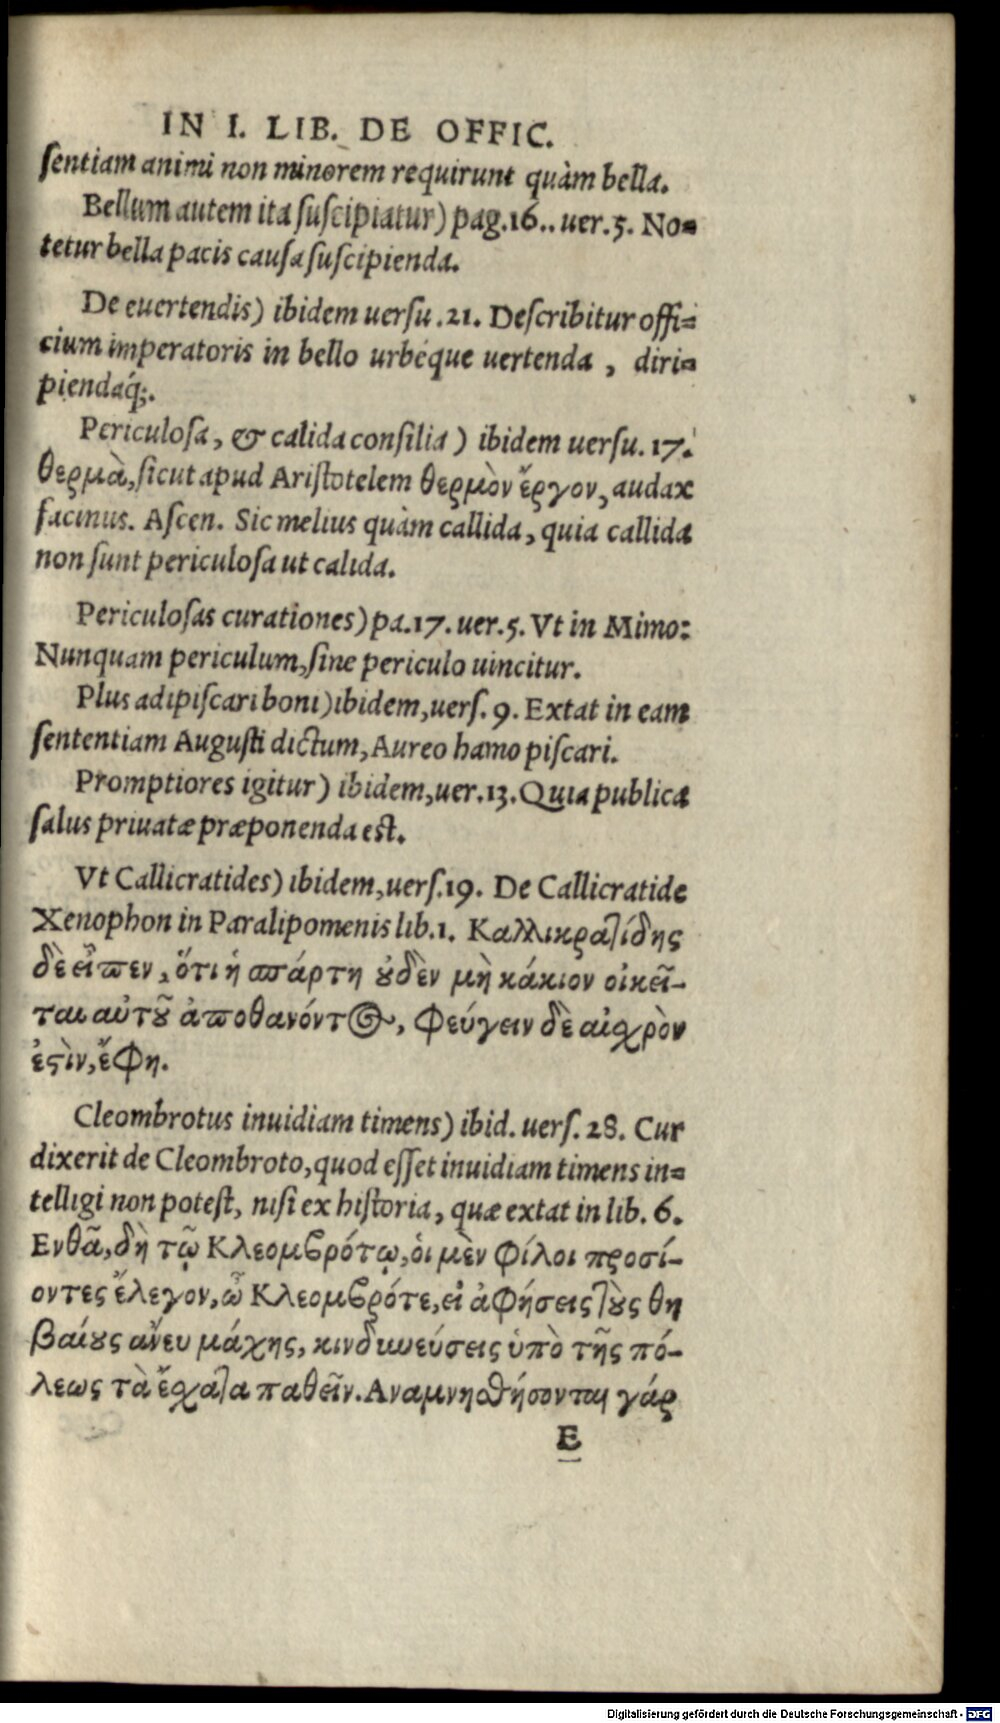 IN I. LIB. DE OFFIC.
sentiam animi non minorem requirunt quàm bella.
Bellum autem ita suscipiatur) pag.16.. uer.5. No=
tetur bella pacis causa suscipienda.
De euertendis) ibidem uersu.21. Describitur offi=
cium imperatoris in bello urbéque uertenda, diri=
piendaq́;.
Periculosa, & calida consilia) ibidem uersu.17.
θερμὰ, sicut apud Aristotelem θερμὸν ἔργον, audax
facinus. Ascen. Sic melius quàm callida, quia callida
non sunt periculosa ut calida.
Periculosas curationes) pa.17. uer.5. Vt in Mimo:
Nunquam periculum, sine periculo uincitur.
Plus adipiscari boni) ibidem, uers.9. Extat in eam
sententiam Augusti dictum, Aureo hamo piscari.
Promptiores igitur) ibidem, uer.13. Quia publica
salus priuatæ præponenda est.
Vt Callicratides) ibidem, uers.19. De Callicratide
Xenophon in Paralipomenis lib.1. Καλλικρατίδης
δὲ εἶπεν, ὅτι ἡ σπάρτη ȣδὲν μὴ κάκιον οἰκεῖ-
ται αὐτȣ͂ ἀποθανόντος, Φεύγειν δὲ αἰχρὸν
ἐςὶν, ἔφη.
Cleombrotus inuidiam timens) ibid. uers.28. Cur
dixerit de Cleombroto, quod esset inuidiam timens in=
telligi non potest, nisi ex historia, quæ extat in lib.6.
Ενθᾶ, δὴ τῷ Κλεομβρότῳ, ὁι μὲν φίλοι προσί-
οντες ἔλεγον, ὦ Κλεομβρότε, εἰ ἀφήσεις τȣ̀ς θη
βαίȣς ἄνευ μάχης, κινδυνεύσεις ὑπὸ τῆς πό-
λεως τὰ ἔχατα παθεῖν. Αναμνησθήσονται γάρ
E
Digitalisierung gefördert durch die Deutsche Forschungsgemeinschaft - DFG